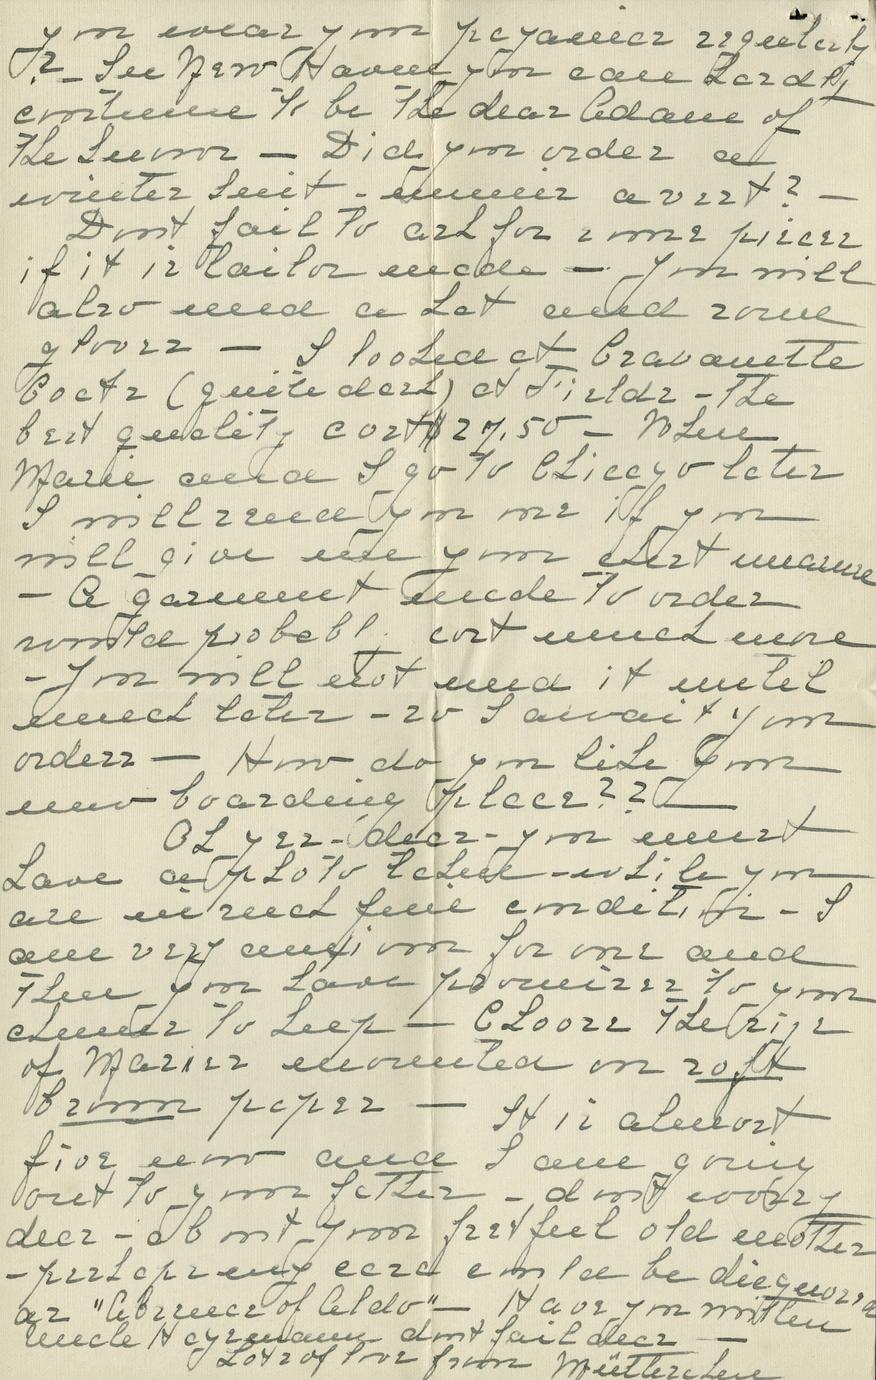 you wear your pajamas regularly
? - In New Haven you can hardly
continue to be the dear Adam of
the Summer — Did you order a
winter suit - una avert? —
Dont fail to ask for some pieces
if it is tailor made — You will
also need a hat and some
gloves — I looked at Cravanette
Coats (quite dark) at Fields - the
best quality cost $27.50 — When
Marie and I go to Chicago later
I will send you one if you
will give me your chest measure
— A garment made to order
would probabl. cost much more
- You will not need it until
much later - so I await your
orders — How do you like your
new boarding place??
Oh yes - dear - you must
have a photo taken - while you
are in such fine condition - I
am very anxious for one and
then you have promises to your
chums to keep — Choose the size
of Maries mounted on soft
brown paper — It is almost
five now and I am going
out to your father - dont worry
dear - about your fretful old mother
- perhaps my case could be diagnosed
as "Absence of Aldo" — Have you written
Uncle Heyrmann dont fail dear —
Lots of love from Mütterchen